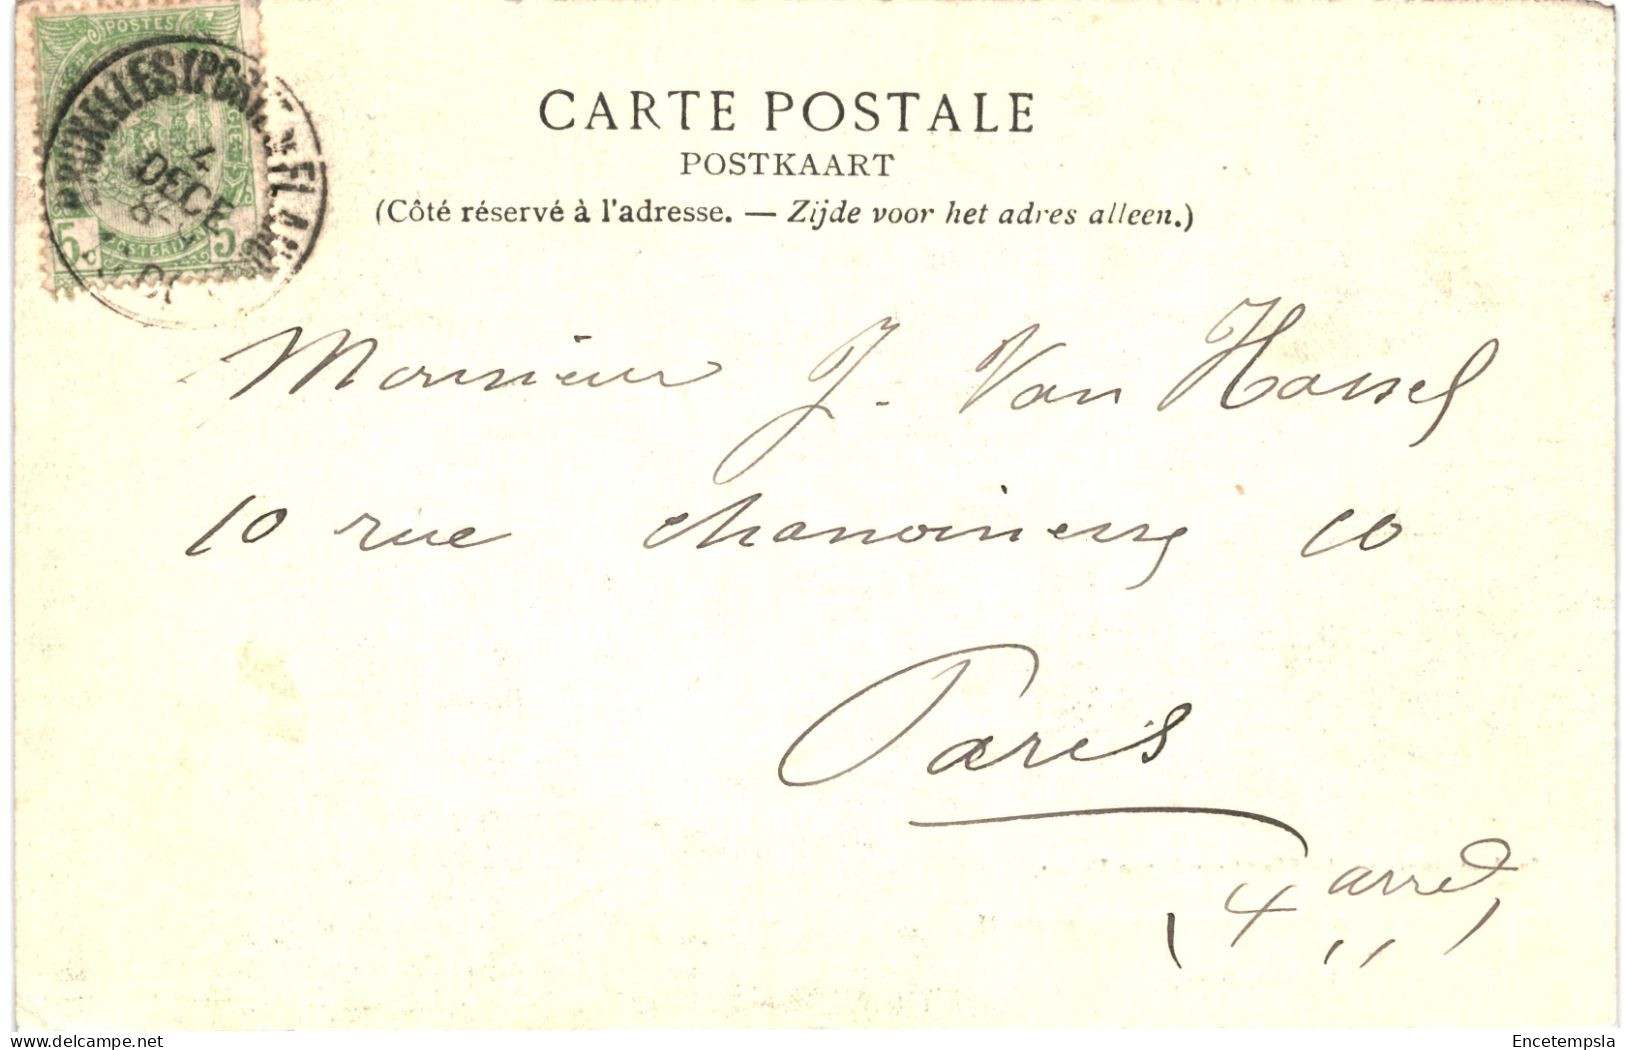 POSTES
5c 5c
BRUXELLES
4
DECE
8-
CARTE POSTALE
POSTKAART
(Côté réservé à l'adresse. — Zijde voor het adres alleen.)
Monsieur J. Van Hassel
10 rue chanoinesse 10
Paris
(4 arred)
delcampe.net
Encetempsla